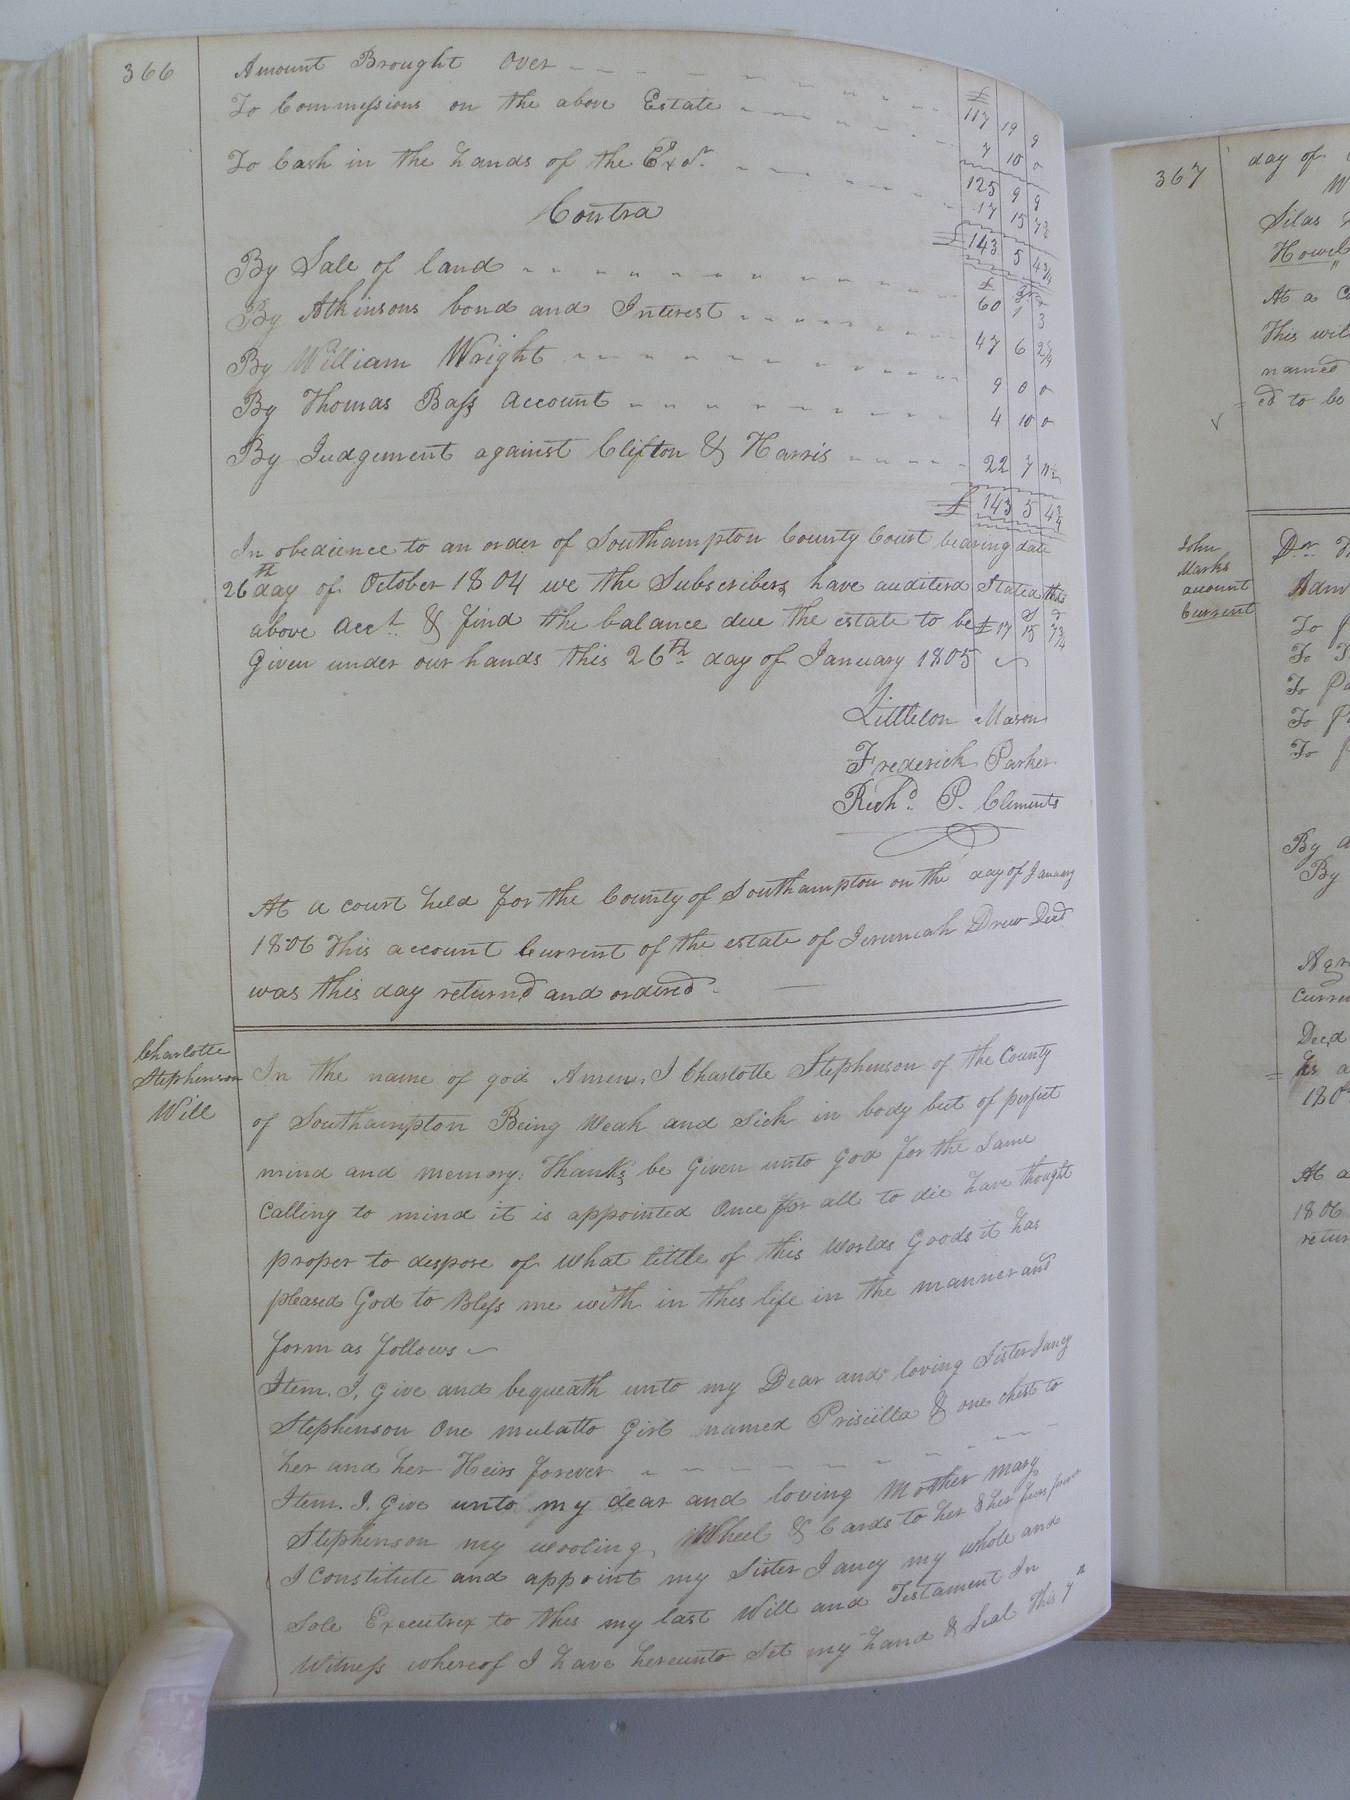 366
Amount Brought Over £ 117 19 9
To Commissions on the above Estate 7 10 0
125 9 9
To Cash in the hands of the Exr. 17 15 7¾
£ 143 5 4¾
Contra
By Sale of land 60 1 3
By Atkinsons bond and Interest 47 6 2¼
By William Wright 9 0 0
By Thomas Bass Account 4 10 0
By Judgement against Clifton & Harris 22 7 11½
£ 143 5 4¾
In obedience to an order of Southampton County Court bearing date
26th day of October 1804 we the Subscribers have auditerd Stated this
above acct. & find the balance due the estate to be £17 15 7¾
Given under our hands this 26th day of January 1805
Littleton Mason
Frederick Parker
Richd. P. Clements
At a court held for the County of Southampton on the day of January
1806 This account Current of the estate of Jeremiah Drew Decd
was this day returnd and ordered
Charlotte
Stephenson
Will
In the name of god Amen. I Charlotte Stephenson of the County
of Southampton Being Weak and Sick in body but of perfect
mind and memory: Thanks be Given unto God for the Same
Calling to mind it is appointed Once for all to die have thought
proper to despose of what little of this Worlds Goods it has
pleased God to Bless me with in this life in the manner and
form as follows
Item. I. give and bequeath unto my Dear and loving Sister Jancy
Stephenson One mulatto Girl named Priscilla & one chest to
her and her Heirs forever
Item. I. Give unto my dear and loving Mother mary
Stephenson my wooling Wheel & Cards to her & her
I Constitute and appoint my Sister Jancy my whole and
Sole Executrix to this my last Will and Testament In
Witness whereof I have hereunto Set my hand & Seal This 7th
367
day of
Silas
Howel
At a
This wil
named
ed to be
John
Marks
account
Current
Dr.
Adm
To
To
To
To
To
By
By
Agr
Curre
Decd
At a
1806
retur